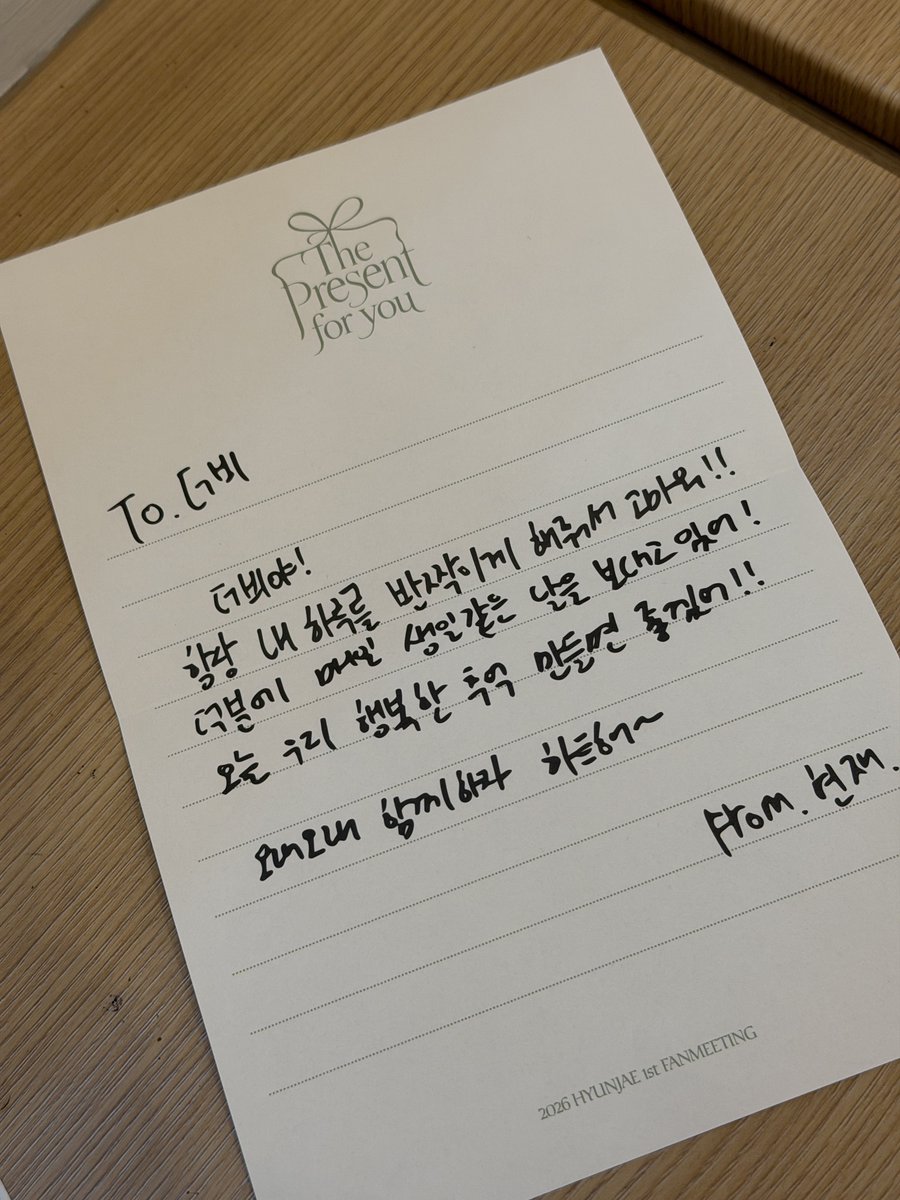 The
Present
for you
To. 더비
더비야!
항상 내 하루를 반짝이게 해줘서 고마워!!
덕분에 매일 생일같은 날을 보내고 있어!
오늘 우리 행복한 추억 만들면 좋겠어!!
오래오래 함께하자 하트해~
From. 현재.
2026 HYUNJAE 1st FANMEETING